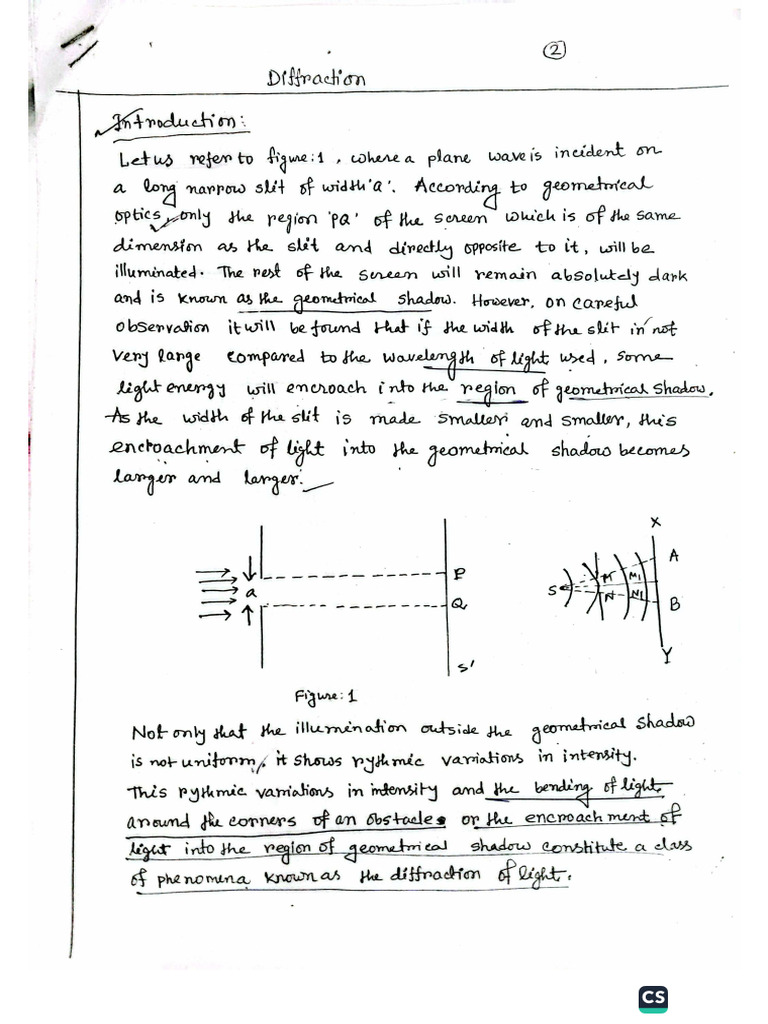 2
Diffraction
Introduction:
Let us refer to figure:1, where a plane wave is incident on
a long narrow slit of width 'a'. According to geometrical
optics, only the region 'PQ' of the screen which is of the same
dimension as the slit and directly opposite to it, will be
illuminated. The rest of the screen will remain absolutely dark
and is known as the geometrical shadow. However, on careful
observation it will be found that if the width of the slit in not
very large compared to the wavelength of light used, some
light energy will encroach into the region of geometrical shadow.
As the width of the slit is made smaller and smaller, this
encroachment of light into the geometrical shadow becomes
larger and larger.
X
A
P
a
S M M1
N N1
Q
B
Y
S'
Figure:1
Not only that the illumination outside the geometrical shadow
is not uniform, it shows rythmic variations in intensity.
This rythmic variations in intensity and the bending of light
around the corners of an obstacle or the encroachment of
light into the region of geometrical shadow constitute a class
of phenomena known as the diffraction of light.
CS